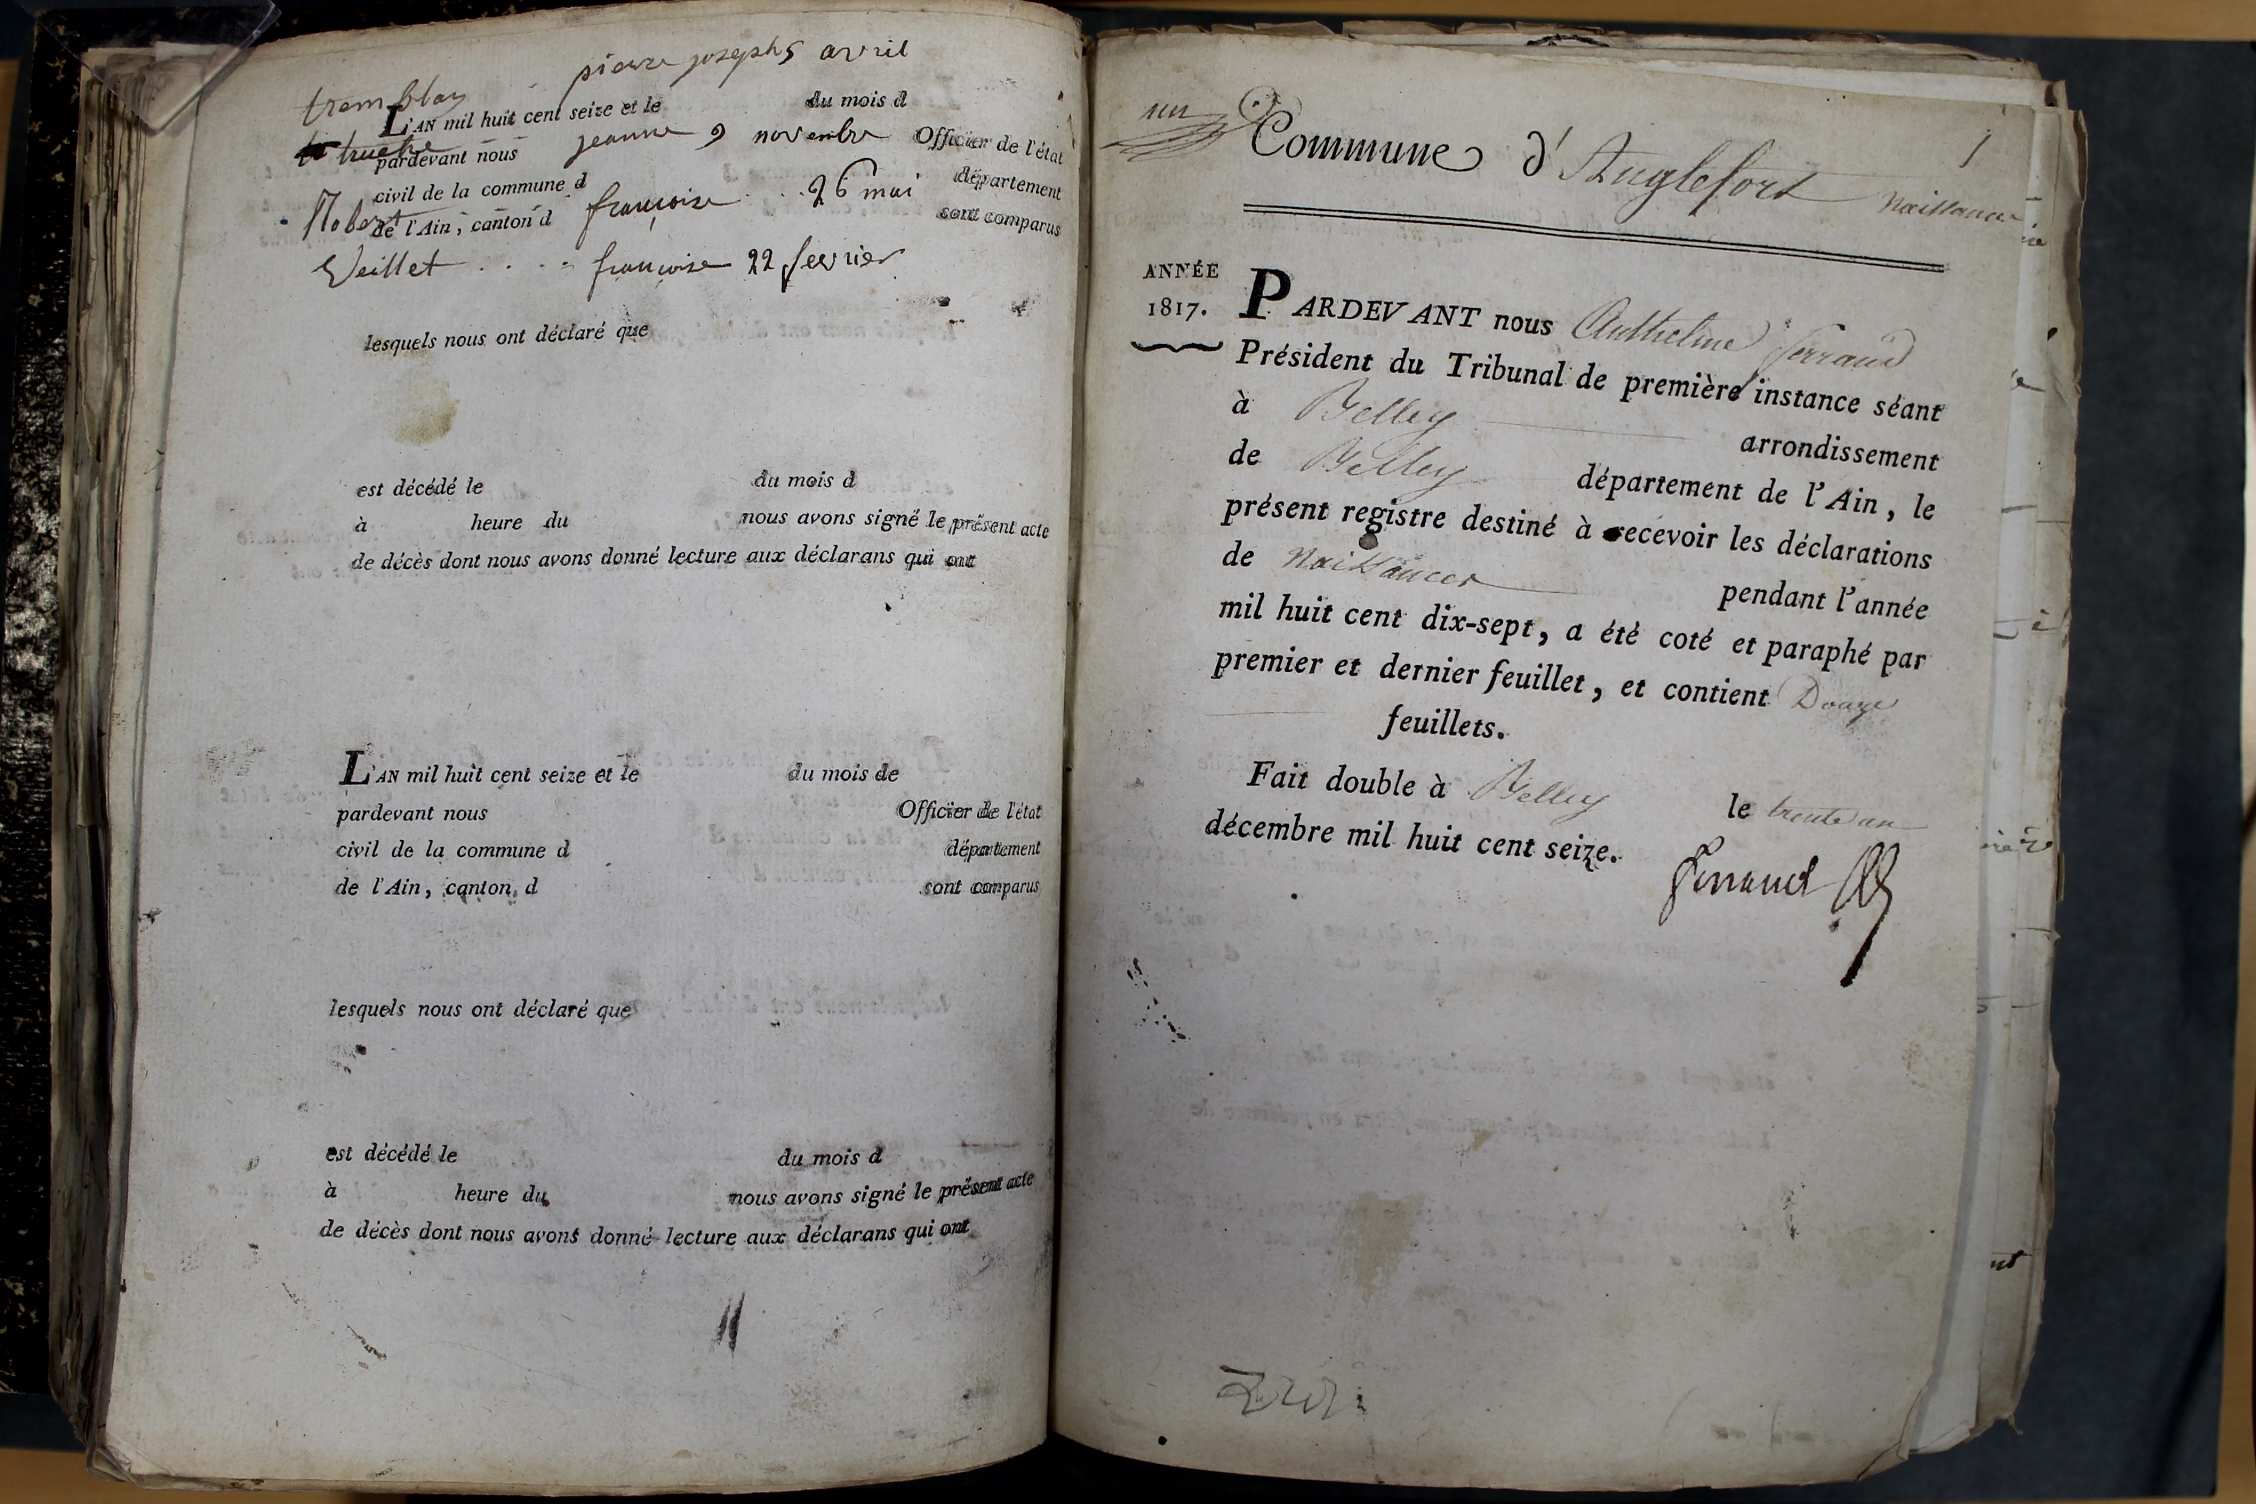 pierre joseph 5 avril
tremblay
L'AN mil huit cent seize et le du mois d
truche jeanne 9 novembre
pardevant nous Officier de l'état
civil de la commune d département
Robert françoise . . . 26 mai
de l'Ain, canton d sont comparus
Veillet . . . . françoise 22 fevrier
lesquels nous ont déclaré que
est décédé le du mois d
à heure du nous avons signé le présent acte
de décès dont nous avons donné lecture aux déclarans qui ont
L'AN mil huit cent seize et le du mois de
pardevant nous Officier de l'état
civil de la commune d département
de l'Ain, canton d sont comparus
lesquels nous ont déclaré que
est décédé le du mois d
à heure du nous avons signé le présent acte
de décès dont nous avons donné lecture aux déclarans qui ont
11
un
1
Commune d'Anglefort
Naissances
ANNÉE
1817.
PARDEVANT nous Anthelme ferraud
Président du Tribunal de première instance séant
à Belley arrondissement
de Belley département de l'Ain, le
présent registre destiné à recevoir les déclarations
de Naissances pendant l'année
mil huit cent dix-sept, a été coté et paraphé par
premier et dernier feuillet, et contient Douze
feuillets.
Fait double à Belley le trente un
décembre mil huit cent seize.
ferraud